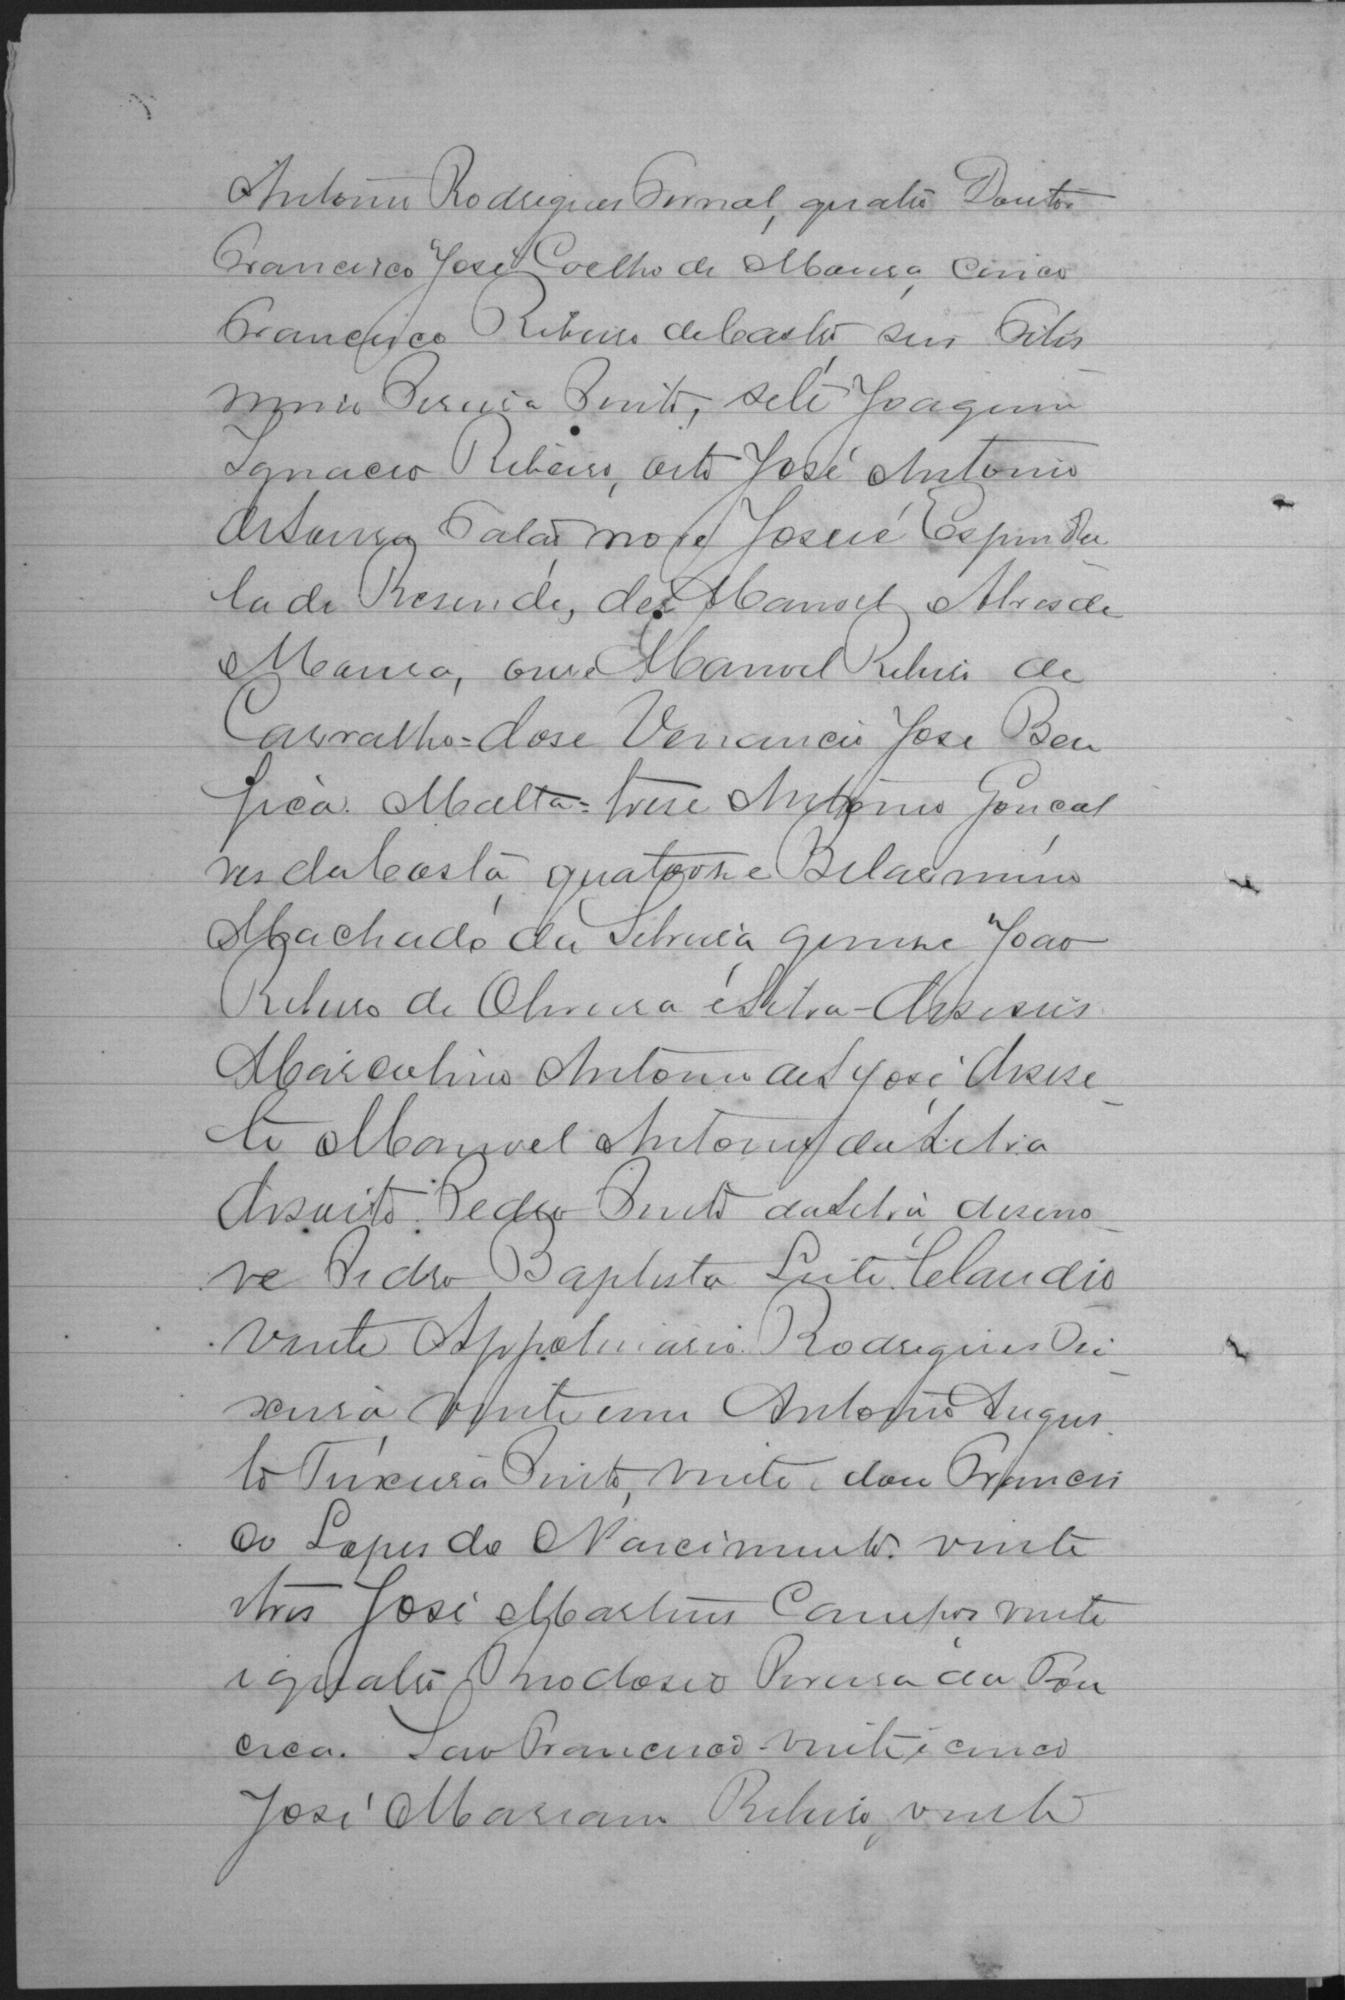 Antonio Rodrigues quatro Doutor
Francisco José Coelho de Moura, cinco
Francisco Ribeiro de Castro, seis Felis
mino Pereira Pinto, sete Joaquim
Ignacio Ribeiro, oito José Antonio
de Souza nove Josué Espindu
la de Resende, dez Manoel Alves de
Moura, onze Manoel Ribeiro de
Carvalho = dose Venancio José Bem
fica Malta = trese Antonio Goncal
ves da Costa, quatorse Belarmino
Machado da Silveira, quinse Joao
Ribeiro de Oliveira e Silva - Deseseis
Marcolino Antonio de S José, Desese
te Manoel Antonio da Silva
Desoito Pedro Pinto da Silva, deseno
ve Pedro Baptista Leite Claudio
vinte Appolinario Rodrigues Tei
xeira, vinte um Antonio Augus
to Teixeira Pinto, vinte e dous Francis
co Lopes do Nascimento. vinte
tres José Martins Campos vinte
e quatro Theodosio Pereira da Fon
ceca. Sao Francisco - vinte e cinco
José Mariano Ribeiro, vinte